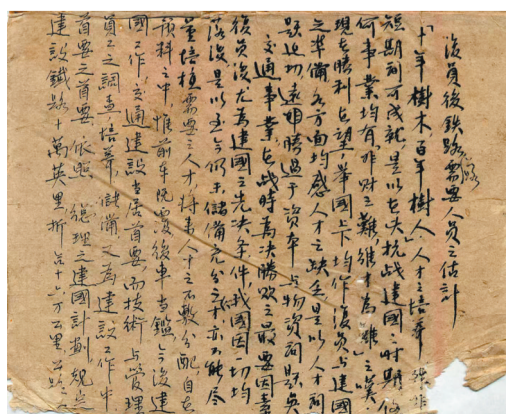 復員後鉄路需要人員之估計
「十年樹木百年樹人」人才之培養
短期所可成就是以在失抗战建國之时期任
何事業均有非财之難維才為難之嘆
現在勝利在望举國上下均作復員与建國
之準備各方面均感人才之缺乏是以人才问
题迫切遠胜過于资本与物资问题矣
交通事業在战時為决勝敗之最要因素
復員後尤為建國之先决条件我國因一切均
落後是以至今仍未儲備充分之才亦不能尽
量培植需要之人才将来人才之不敷分配自在
預料之中惟前車既覆後車当鑑今後建
國工作交通建設当居首要而技術与管理
員工之調查培养儲備又為建設工作中
首要之首要依照總理之建國計劃規定
建設鐵路十萬英里折合十六万公里